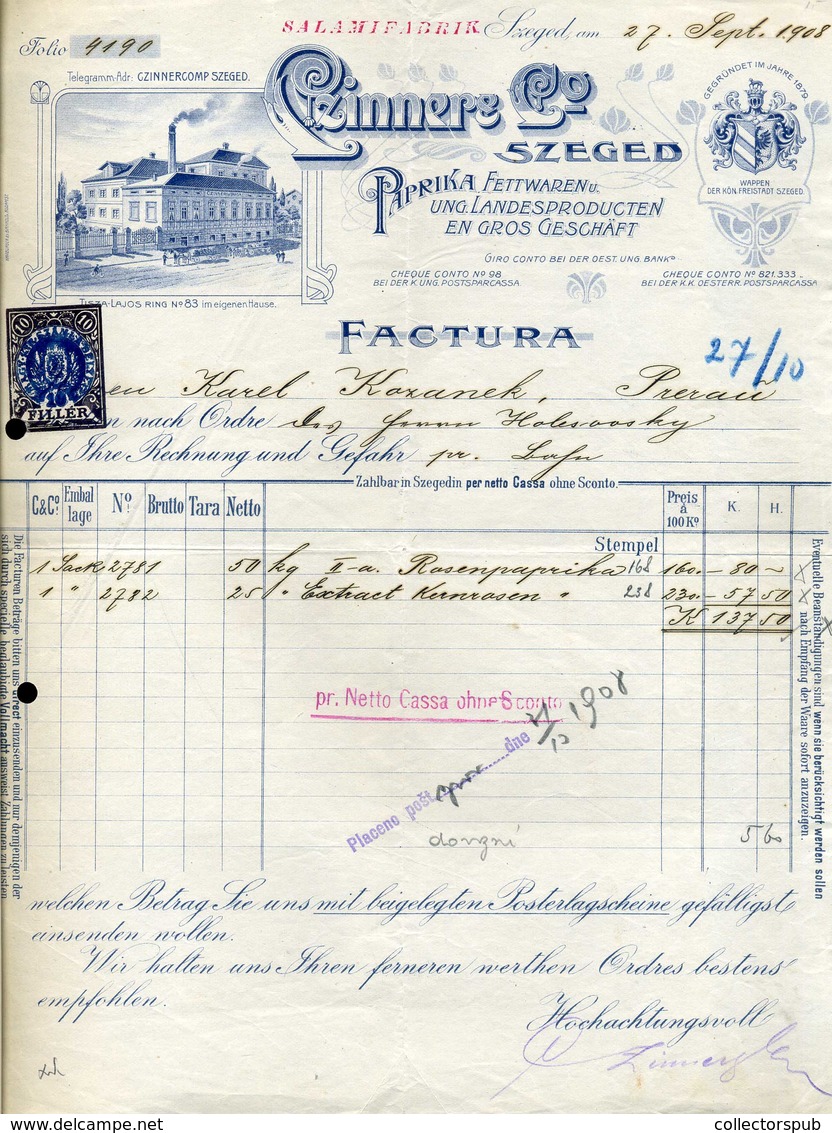 SALAMIFABRIK Szeged, am 27. Sept. 1908
Folio 4190
Telegramm-Adr: CZINNERCOMP SZEGED.
Czinner & Co
SZEGED
PAPRIKA, FETTWAREN U.
UNG. LANDESPRODUCTEN
EN GROS GESCHÄFT
GIRO CONTO BEI DER OEST. UNG. BANK.
CHEQUE CONTO No 98
BEI DER K. UNG. POSTSPARCASSA.
CHEQUE CONTO No 821.333
BEI DER K.K. OESTERR. POSTSPARCASSA
GEGRÜNDET IM JAHRE 1879
WAPPEN
DER KÖN. FREISTADT SZEGED.
TISZA-LAJOS RING No 83 im eigenen Hause.
FACTURA
27/10
10 10
10
FILLÉR
Karel Kozanek, Prerau
nach Ordre des Herrn Holesovsky
auf Ihre Rechnung und Gefahr pr. Bahn
Zahlbar in Szegedin per netto Cassa ohne Sconto.
C&Co. Emballage No Brutto Tara Netto Preis à 100 Ko K. H.
Stempel
1 Sack 2781 50 kg II-a. Rosenpaprika 168 160.- 80 -
1 " 2782 25 " Extract Kernrosen " 238 230.- 57 50
K 137 50
pr. Netto Cassa ohne Sconto
Placeno pošt dne 1908
5 60
welchen Betrag Sie uns mit beigelegten Posterlagscheine gefälligst
einsenden wollen.
Wir halten uns Ihren ferneren werthen Ordres bestens
empfohlen.
Hochachtungsvoll
Die Facturen Beträge bitten uns direct einzusenden und nur demjenigen der
sich durch specielle beglaubigte Vollmacht ausweist Zahlungen zu leisten
Eventuelle Beanständigungen sind wenn sie berücksichtigt werden sollen
nach Empfang der Waare sofort anzuzeigen.
collectorspub